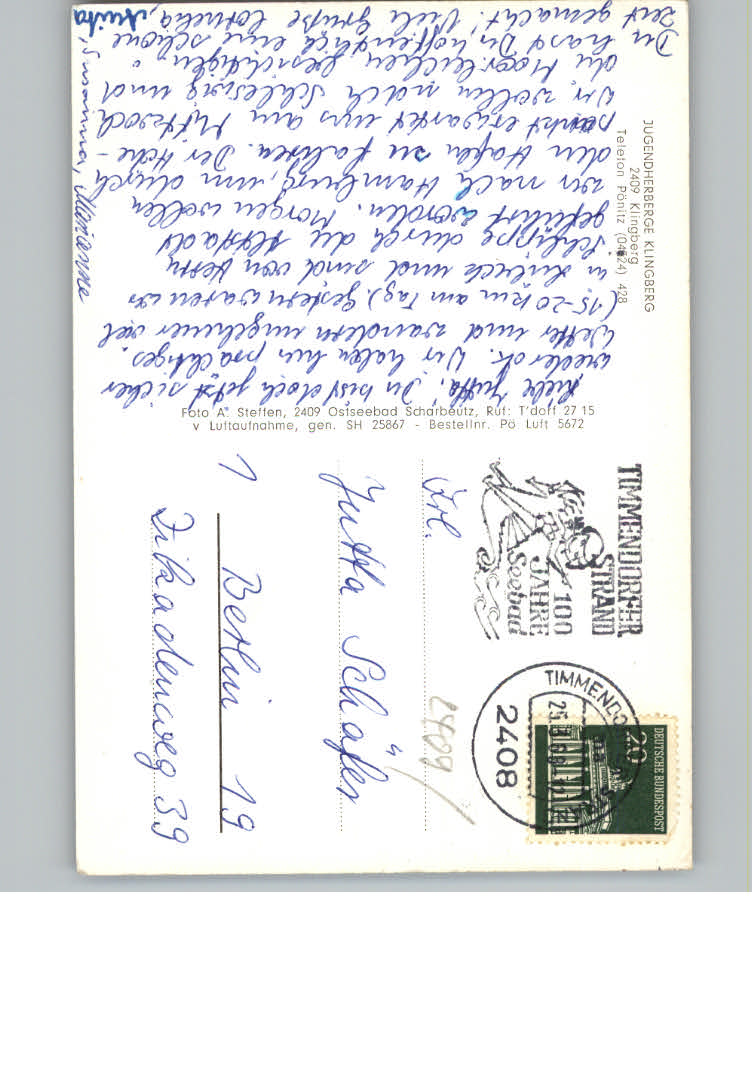 Liebe Jutta! Du bist doch jetzt sicher
wieder ok. Wir haben hier prächtiges
Wetter und wandern ungeheuer viel
(15-20 km am Tag). Gestern waren wir
in Lübeck und sind von Herrn
Schlüppe durch die Altstadt
geführt worden. Morgen wollen
wir nach Hamburg, um durch
den Hafen zu fahren. Der Höhe-
punkt erwartet uns am Mittwoch
Wir wollen nach Schleswig und
die Moorleichen besichtigen.
Du hast Dir hoffentlich eine schöne
Zeit gemacht. Viele Grüße Cornelia, Anita
, Susanna, Marianne
JUGENDHERBERGE KLINGBERG
2409 Klingberg
Telefon Pönitz (04524) 428
Foto A. Steffen, 2409 Ostseebad Scharbeutz, Ruf: T'dorf 27 15
v Luftaufnahme, gen. SH 25867 - Bestellnr. Pö Luft 5672
TIMMENDORFER
STRAND
100
JAHRE
Seebad
2408
TIMMENDO
DEUTSCHE BUNDESPOST
20
2409
Frl.
Jutta Schäfer
1 Berlin 19
Dikadenweg 39